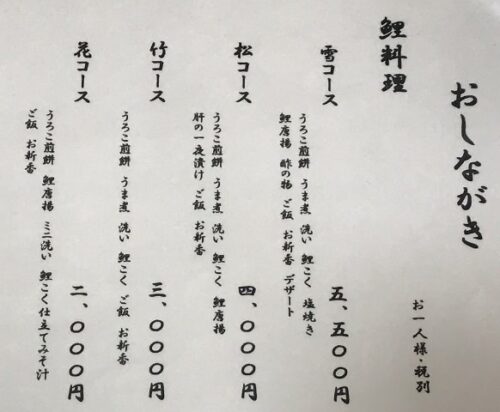 おしながき
お一人様・税別
鯉料理
雪コース
うろこ煎餅 うま煮 洗い 鯉こく 塩焼き
鯉唐揚 酢の物 ご飯 お新香 デザート
五、五〇〇円
松コース
うろこ煎餅 うま煮 洗い 鯉こく 鯉唐揚
肝の一夜漬け ご飯 お新香
四、〇〇〇円
竹コース
うろこ煎餅 うま煮 洗い 鯉こく ご飯 お新香
三、〇〇〇円
花コース
うろこ煎餅 鯉唐揚 ミニ洗い 鯉こく仕立てみそ汁
ご飯 お新香
二、〇〇〇円